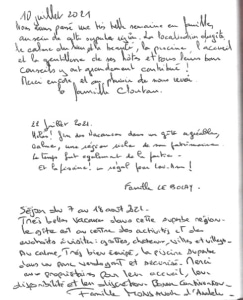 10 juillet 2021
Nous avons passé une très belle semaine en famille,
au sein de cette superbe région. La localisation du gîte,
le calme du la piscine, l'accueil
et la gentillesse de ses hôtes et tous leurs bons
conseils y ont grandement contribué !
Merci encore, et au plaisir de vous revoir
la famille
22 Juillet 2021.
Hélas! Fin des vacances dans un gîte agréable,
calme, une région riche de son patrimoine
le temps fut également de la partie.
Et la piscine un régal pour tous !
Famille LE BOLAY.
Séjour du 7 au 18 août 2021.
Très belles vacances dans cette superbe région.
Le gîte est au centre des activités et des
endroits à visiter : grottes, châteaux, villes et villages.
Au calme, très bien équipé, la piscine superbe
dans un parc verdoyant et sécurisé. Merci
aux propriétaires pour leur accueil, leur
disponibilité et leur discrétion. Bonne continuation
Famille